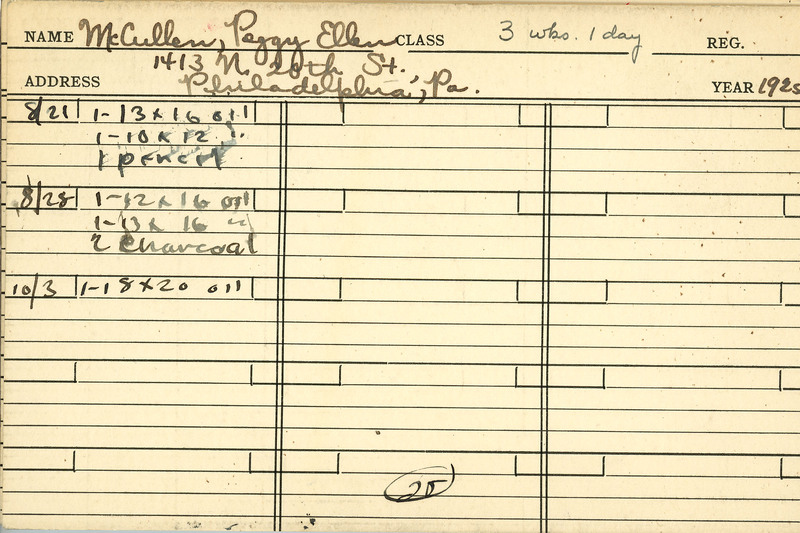 NAME McCullen, Peggy Ellen CLASS 3 wks. 1 day REG.
1413 N. 20th St.
ADDRESS Philadelphia, Pa. YEAR 1925
8/21 1-13 x 16 oil
1-10 x 12 ".
1 pencil
8/28 1-12 x 16 oil
1-13 x 16 "
2 Charcoal
10/3 1-18 x 20 oil
25